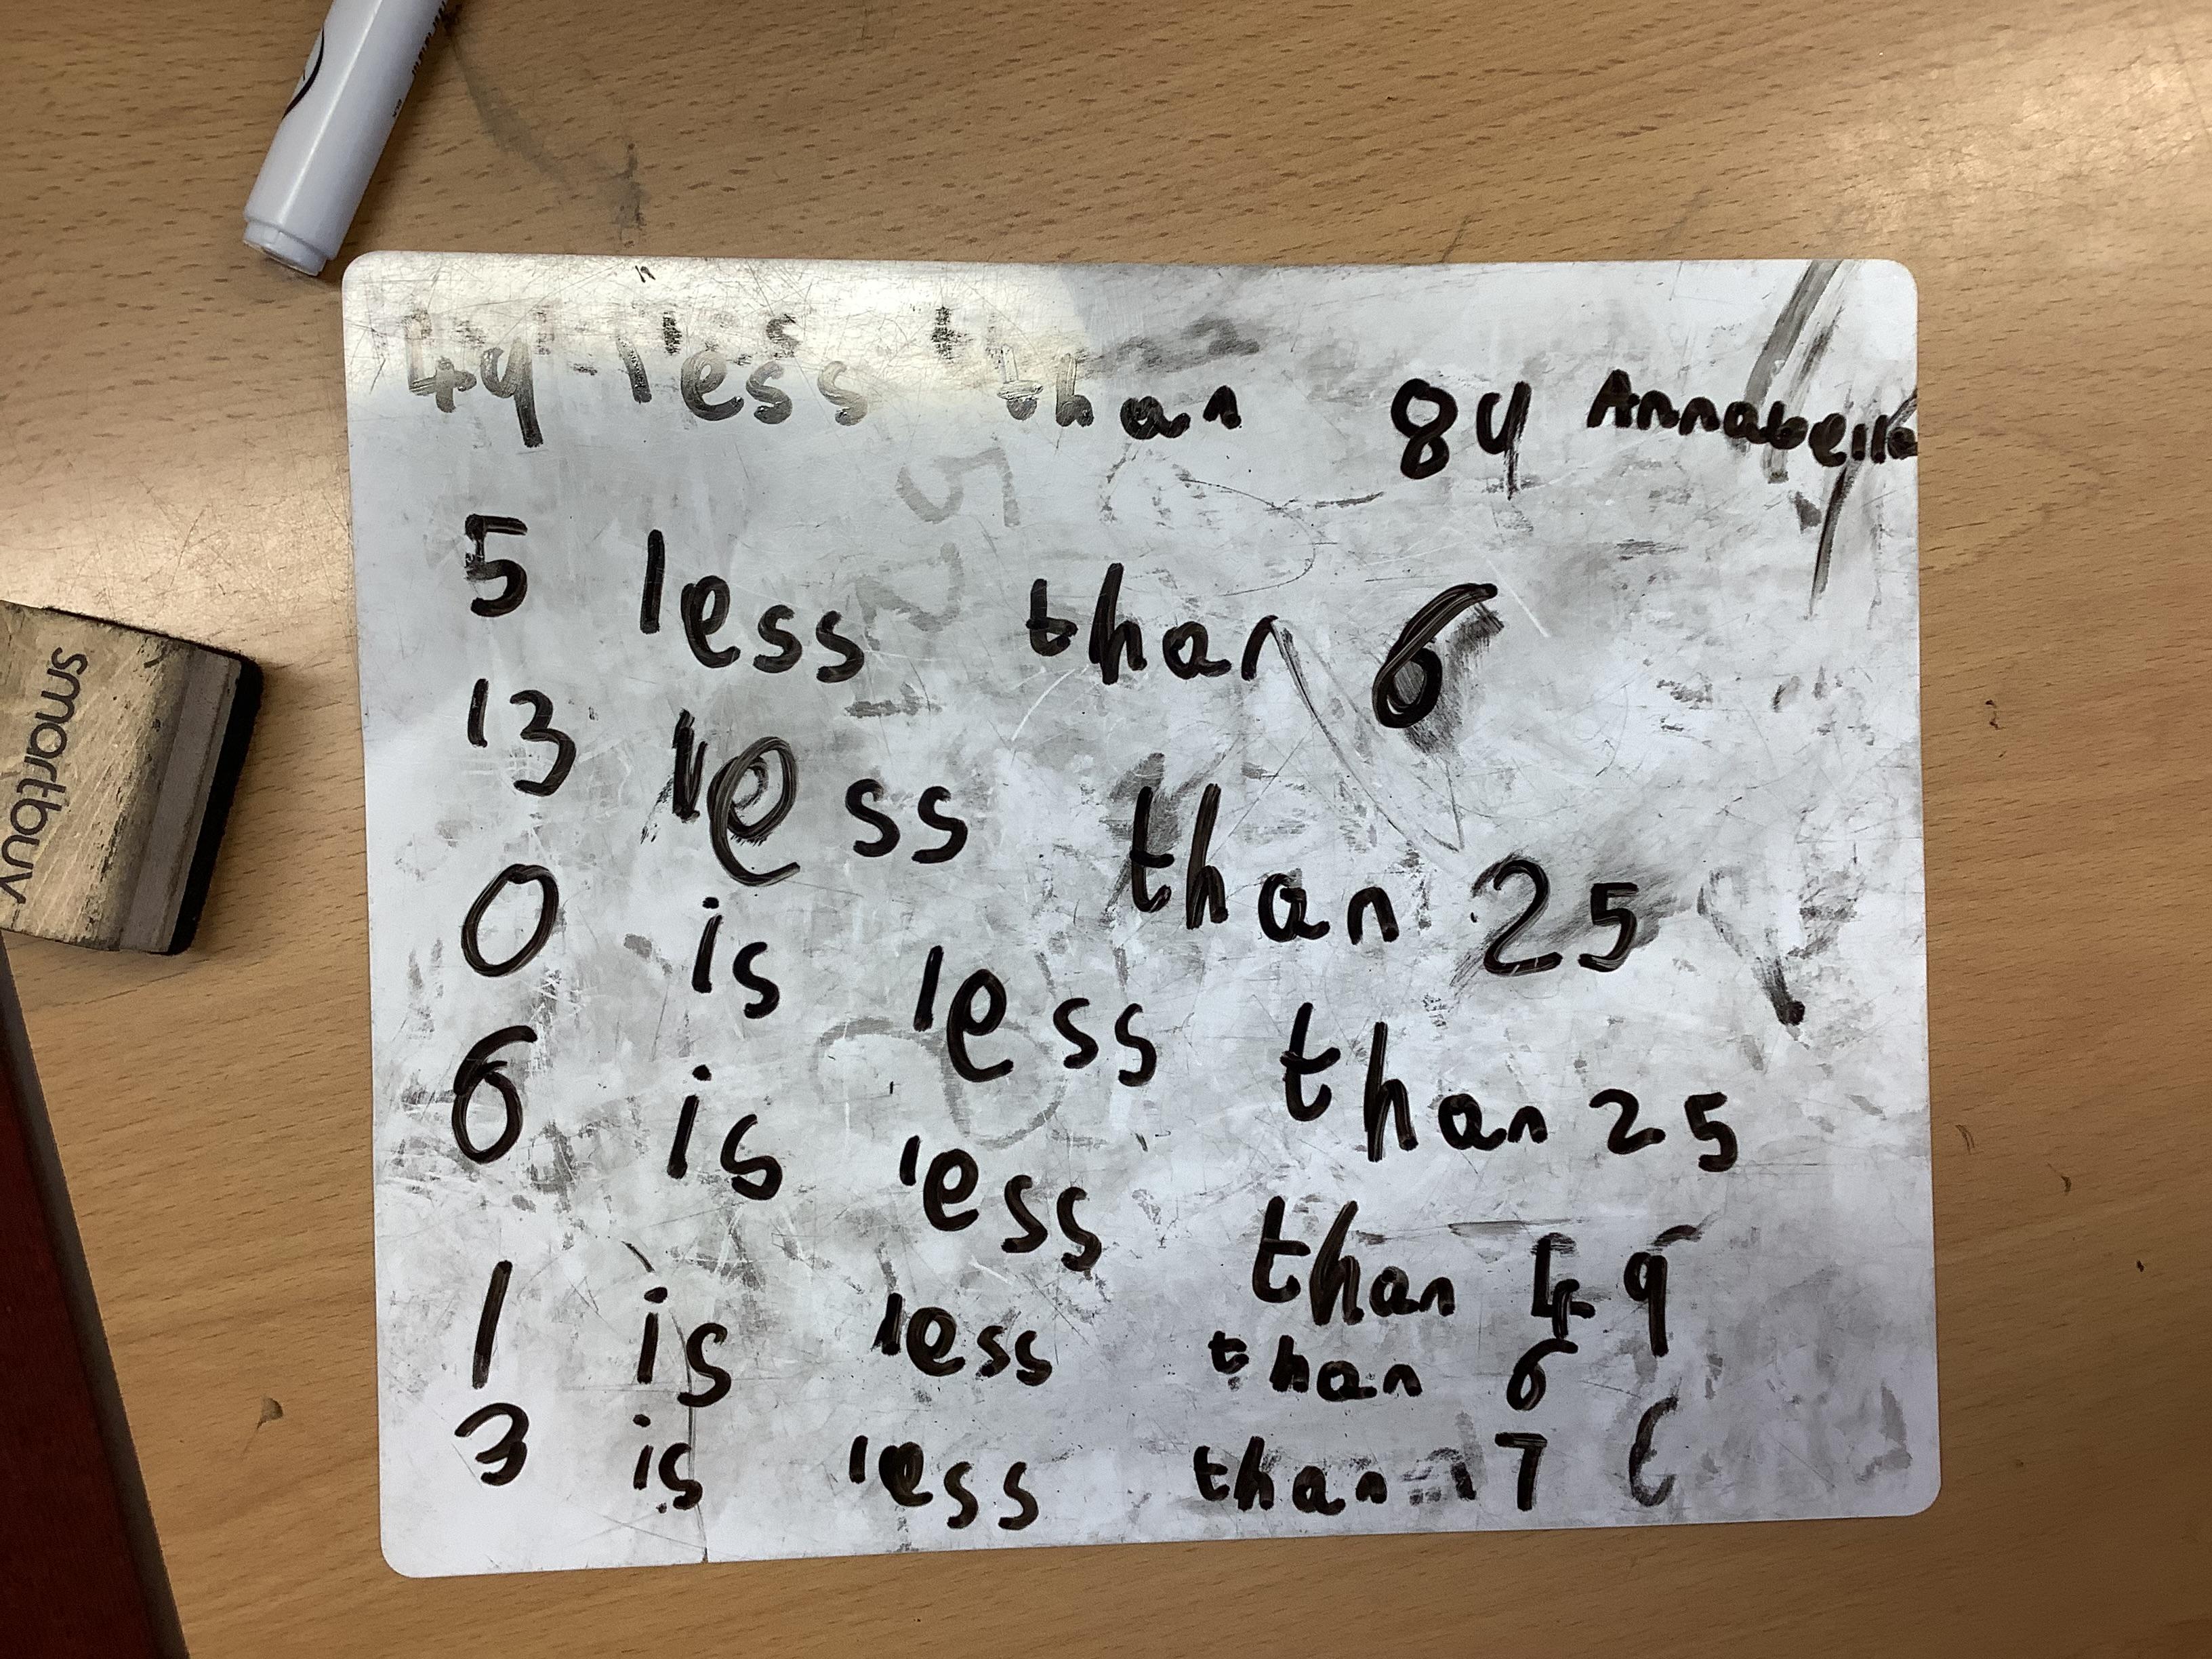 49 less than 84 Annabelle
5 less than 6
13 less than 25
0 is less than 25
6 is less than 49
1 is less than 6
3 is less than 17 6
smartbuy